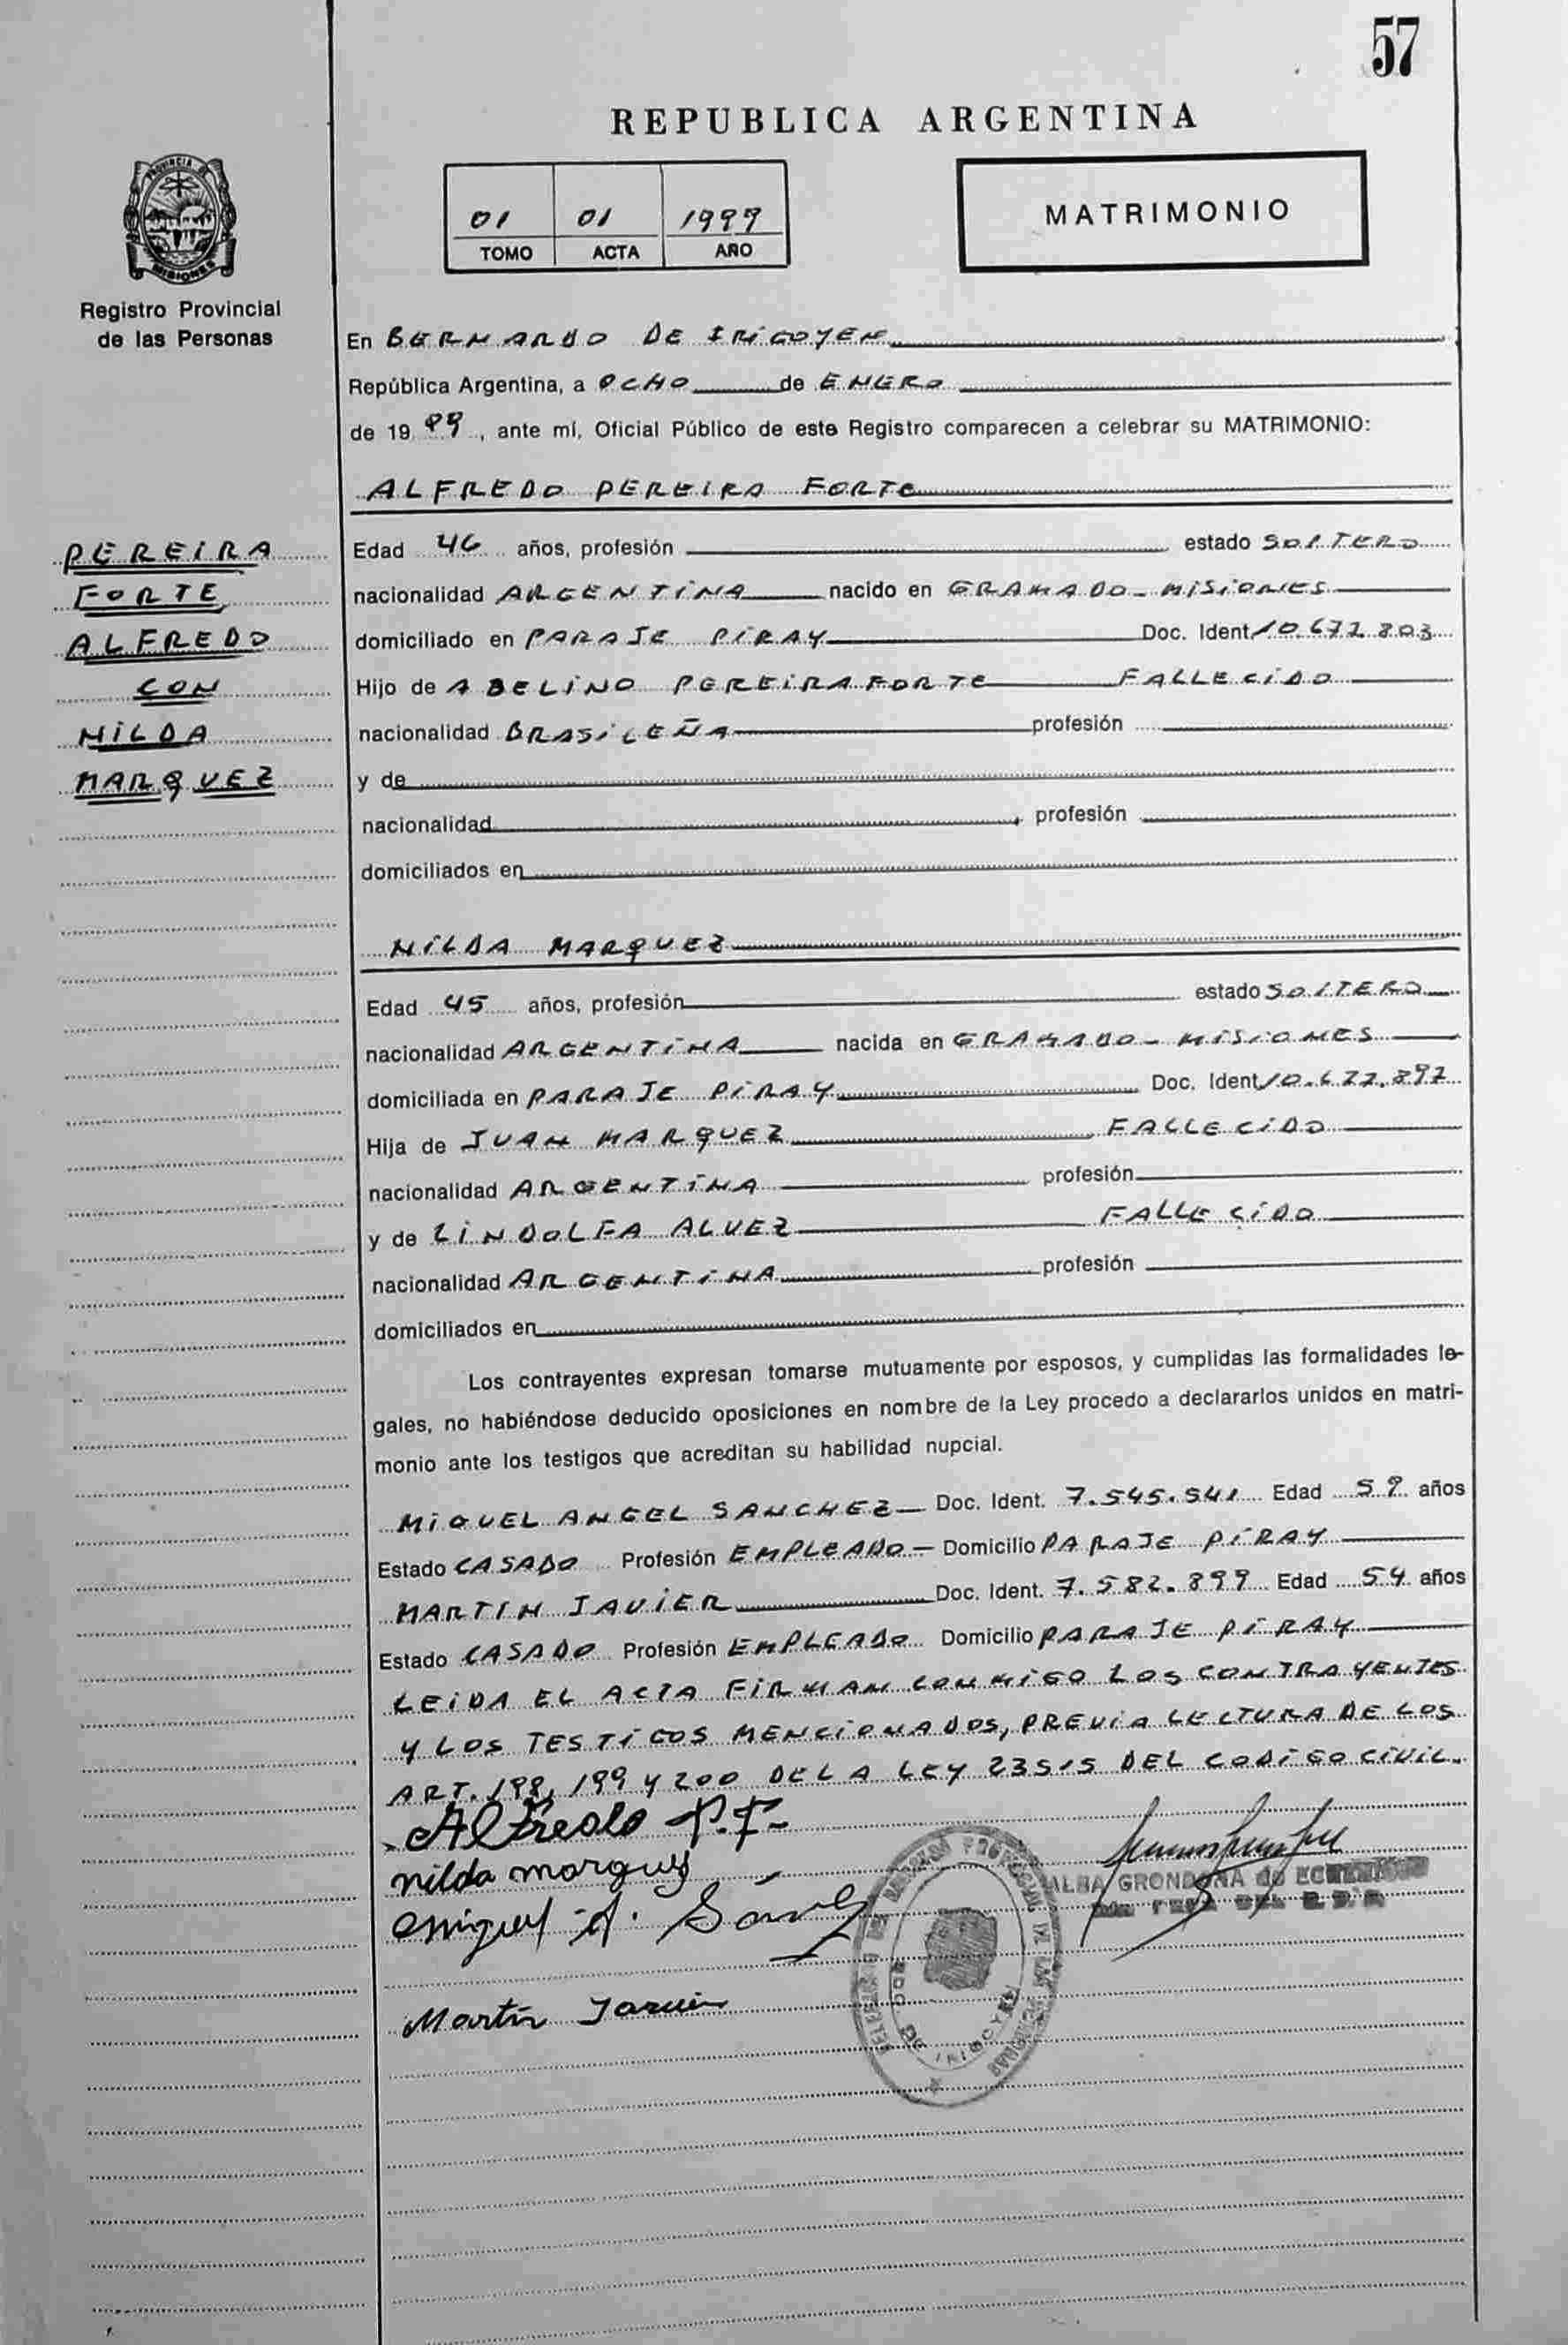 57
REPUBLICA ARGENTINA
01 01 1999
TOMO ACTA AÑO
MATRIMONIO
PROVINCIA DE
MISIONES
Registro Provincial
de las Personas
En BERNARDO DE IRIGOYEN
República Argentina, a OCHO de ENERO
de 19 99, ante mí, Oficial Público de este Registro comparecen a celebrar su MATRIMONIO:
ALFREDO PEREIRA FORTE
PEREIRA
FORTE
ALFREDO
CON
NILDA
MARQUEZ
Edad 46 años, profesión estado SOLTERO
nacionalidad ARGENTINA nacido en GRAMADO - MISIONES
domiciliado en PARAJE PIRAY Doc. Ident. 10.672.803
Hijo de ABELINO PEREIRA FORTE FALLECIDO
nacionalidad BRASILEÑA profesión
y de
nacionalidad , profesión
domiciliados en
NILDA MARQUEZ
Edad 45 años, profesión estado SOLTERO
nacionalidad ARGENTINA nacida en GRAMADO - MISIONES
domiciliada en PARAJE PIRAY Doc. Ident.
Hija de JUAN MARQUEZ FALLECIDO
nacionalidad ARGENTINA profesión
y de LINDOLFA ALVEZ FALLECIDO
nacionalidad ARGENTINA profesión
domiciliados en
Los contrayentes expresan tomarse mutuamente por esposos, y cumplidas las formalidades le-
gales, no habiéndose deducido oposiciones en nombre de la Ley procedo a declararlos unidos en matri-
monio ante los testigos que acreditan su habilidad nupcial.
MIGUEL ANGEL SANCHEZ - Doc. Ident. 7.545.541 Edad 59 años
Estado CASADO Profesión EMPLEADO - Domicilio PARAJE PIRAY
MARTIN JAVIER Doc. Ident. 7.582.899 Edad 54 años
Estado CASADO Profesión EMPLEADO Domicilio PARAJE PIRAY
LEIDA EL ACTA FIRMAN CONMIGO LOS CONTRAYENTES
Y LOS TESTIGOS MENCIONADOS, PREVIA LECTURA DE LOS
ART. 198, 199 Y 200 DE LA LEY 23515 DEL CODIGO CIVIL.
Alfredo P.F.
nilda marquez
Miguel A.
Martin Javier
ALBA GRONDONA de